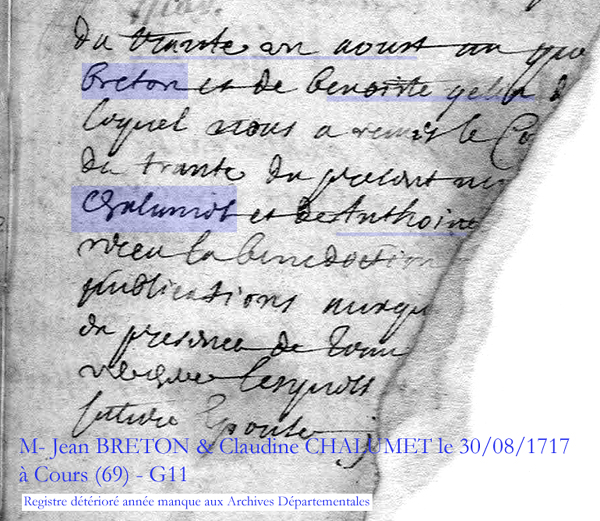 du trante en aoust un
breton et de benoiste gelin d
loquel nous a remis le Co
du trante du present m
Chalumet et de Anthoine
receu la benediction
publications auxqu
en presence de
lesquels
future Epouse
M- Jean BRETON & Claudine CHALUMET le 30/08/1717
à Cours (69) - G11
Registre détérioré année manque aux Archives Départementales